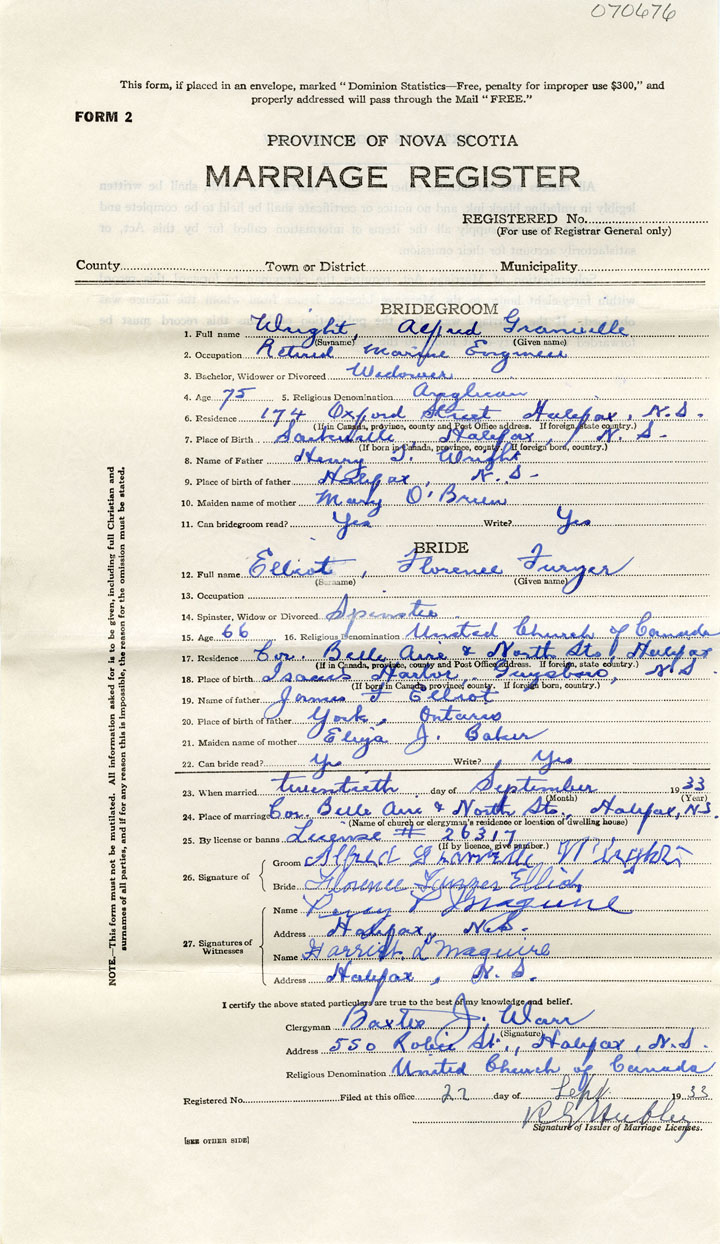 070676
This form, if placed in an envelope, marked "Dominion Statistics—Free, penalty for improper use $300," and
properly addressed will pass through the Mail "FREE."
FORM 2
PROVINCE OF NOVA SCOTIA
MARRIAGE REGISTER
REGISTERED No.
(For use of Registrar General only)
County Town or District Municipality
BRIDEGROOM
1. Full name Wright, Alfred Granville
(Surname) (Given name)
2. Occupation Retired Marine Engineer
3. Bachelor, Widower or Divorced Widower
4. Age 75 5. Religious Denomination Anglican
6. Residence 174 Oxford Street Halifax, N.S.
(If in Canada, province, county and Post Office address. If foreign, state country.)
7. Place of Birth Sackville, Halifax, N.S.
(If born in Canada, province, county. If foreign born, country.)
8. Name of Father Henry Wright
9. Place of birth of father Halifax, N.S.
10. Maiden name of mother Mary O'Brien
11. Can bridegroom read? Yes Write? Yes
BRIDE
12. Full name Elliot, Florence
(Surname) (Given name)
13. Occupation
14. Spinster, Widow or Divorced Spinster
15. Age 66 16. Religious Denomination United Church of Canada
17. Residence Cor. Belle Aire & North Sts Halifax
(If in Canada, province, county and Post Office address. If foreign, state country.)
18. Place of birth Isaacs Harbor, Guysboro, N.S.
(If born in Canada, province, county. If foreign born, country.)
19. Name of father James F Elliot
20. Place of birth of father York, Ontario
21. Maiden name of mother Eliza J. Baker
22. Can bride read? Yes Write? Yes
23. When married twentieth day of September 1933
(Month) (Year)
24. Place of marriage Cor. Belle Aire & North Sts, Halifax, N.S.
(Name of church or clergyman's residence or location of dwelling house)
25. By license or banns License # 26317
(If by licence, give number.)
26. Signature of Groom Alfred Granville Wright
Bride Florence Elliot
27. Signatures of Witnesses Name Percy Maguire
Address Halifax, N.S.
Name Harriet L Maguire
Address Halifax, N.S.
I certify the above stated particulars are true to the best of my knowledge and belief.
Clergyman Baxter J. Warr
(Signature)
Address 550 Robie St., Halifax, N.S.
Religious Denomination United Church of Canada
Registered No. Filed at this office 22 day of Sept 1933
Signature of Issuer of Marriage Licenses.
[SEE OTHER SIDE]
NOTE.—This form must not be mutilated. All information asked for is to be given, including full Christian and
surnames of all parties, and if for any reason this is impossible, the reason for the omission must be stated.